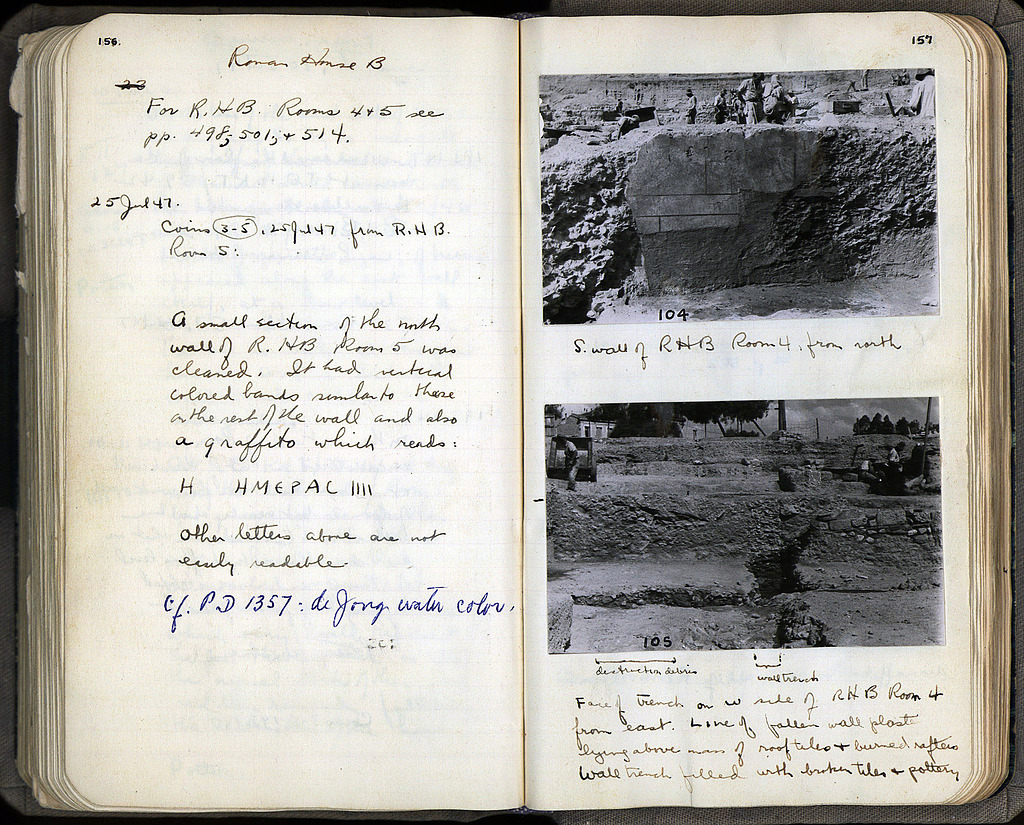 156.
Roman House B
23
For R.H.B. Rooms 4+5 see
pp. 498, 501, + 514.
25 Jul 47.
Coins 3-5, 25 Jul 47 from R.H.B.
Room 5:
A small section of the north
wall of R.HB Room 5 was
cleaned. It had vertical
colored bands similar to those
on the rest of the wall and also
a graffito which reads:
H HMEPAC IIII
Other letters above are not
easily readable.
Cf. P.D 1357: de Jong water color.
157
104
S. wall of RHB Room 4, from north
105
destruction debris
wall trench
Face of trench on w side of RHB Room 4
from east. Line of fallen wall plaster
lying above mass of rooftiles + burned rafters
Wall trench filled with broken tiles + pottery